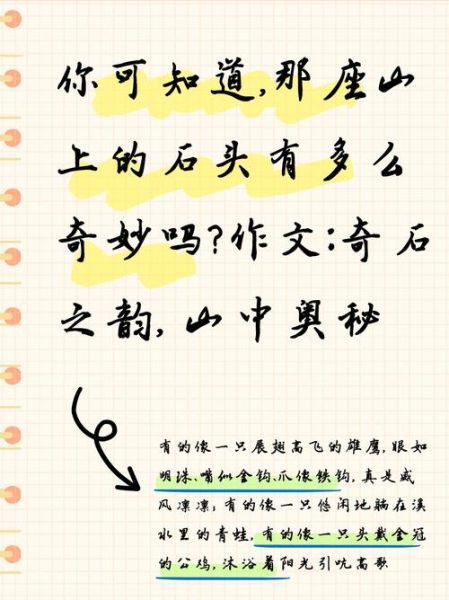 你可知道,那座山
上的石头有多么
奇妙吗?作文:奇石
之韵,山中奥秘
有的像一只展翅高飞的雄鹰,眼如
明珠、嘴似金钩、爪像铁钩,真是威
风凛凛;有的像一只悠闲地躺在溪
水里的青蛙,有的像一只头戴金冠
的公鸡,沐浴着阳光引吭高歌